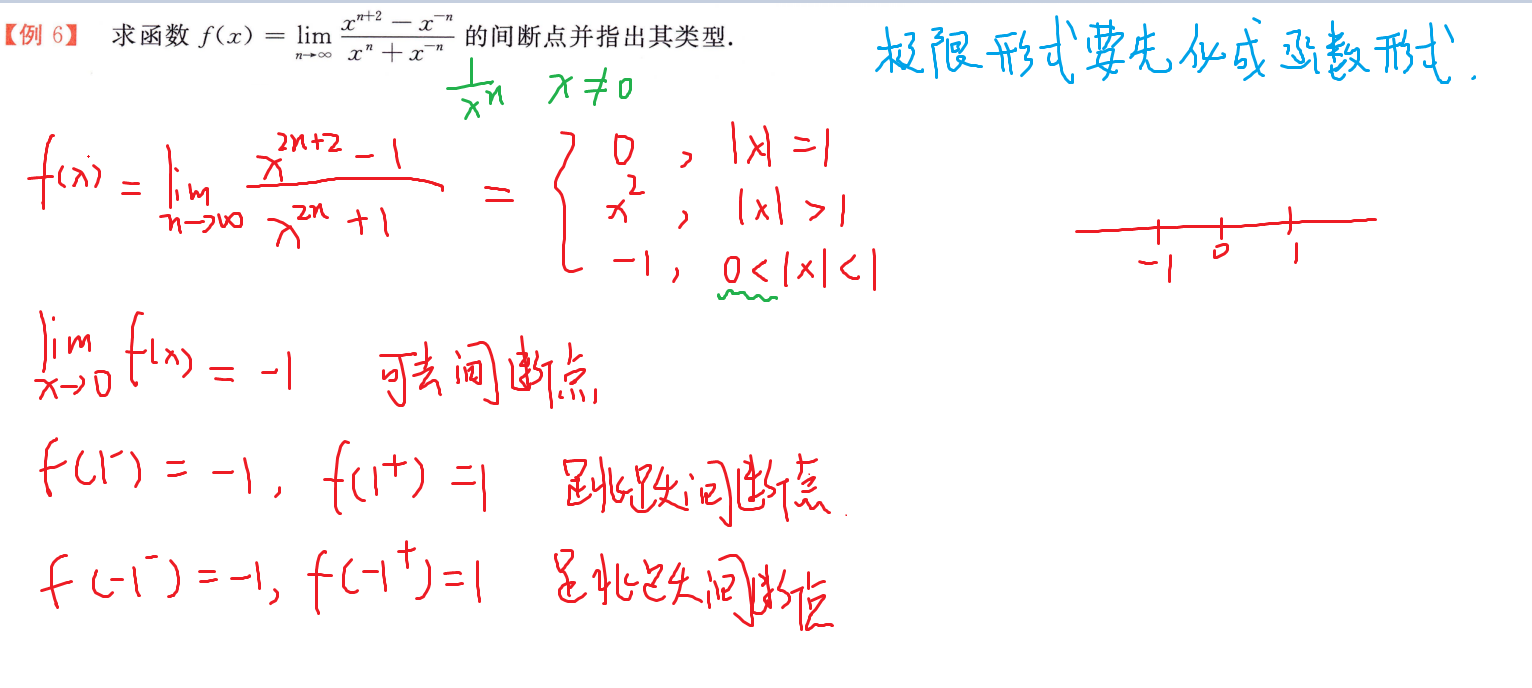 【例 6】 求函数 f(x) = lim_{n→∞} \frac{x^{n+2} - x^{-n}}{x^n + x^{-n}} 的间断点并指出其类型.
极限形式要先化成函数形式.
\frac{1}{x^n} x ≠ 0
f(x) = lim_{n→∞} \frac{x^{2n+2} - 1}{x^{2n} + 1} = { 0 , |x| = 1
x^2 , |x| > 1
-1 , 0 < |x| < 1
-1 0 1
lim_{x→0} f(x) = -1 可去间断点,
f(1^-) = -1, f(1^+) = 1 跳跃间断点.
f(-1^-) = -1, f(-1^+) = 1 跳跃间断点